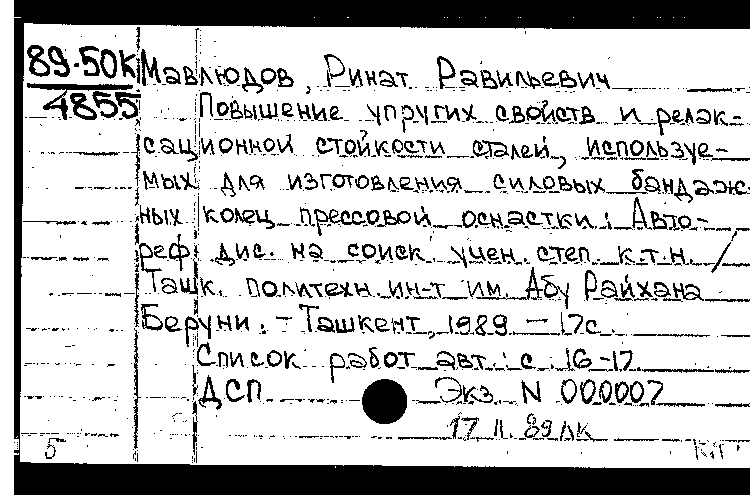 89-50К Мавлюдов, Ринат Равильевич
4855 Повышение упругих свойств и релак-
сационной стойкости сталей, используе-
мых для изготовления силовых бандаж-
ных колец прессовой оснастки: Авто-
реф. дис. на соиск. учен. степ. к.т.н. /
Ташк. политехн. ин-т им. Абу Райхана
Беруни. - Ташкент, 1989 - 17с.
Список работ авт.: с. 16-17
ДСП Экз. N 000007
17 II. 89 ЛК
5